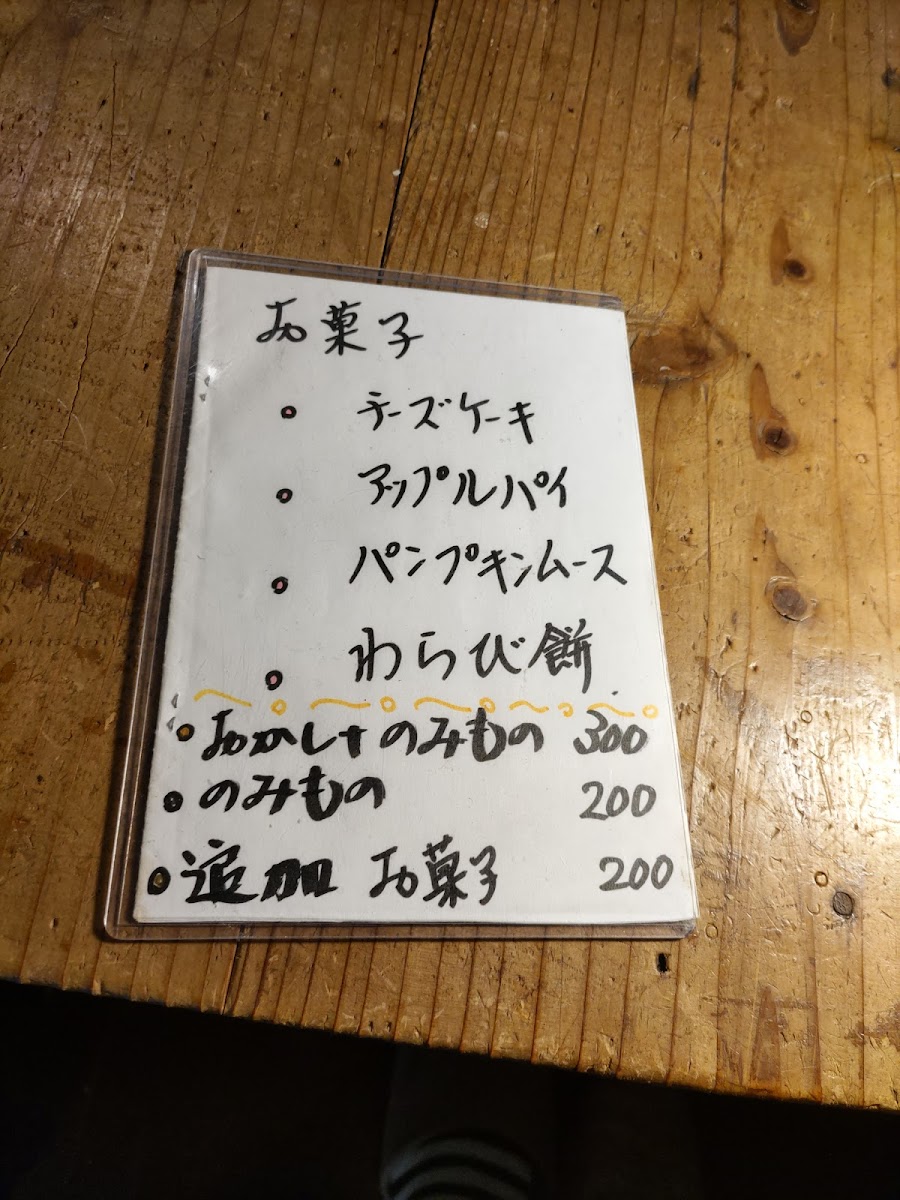 お菓子
チーズケーキ
アップルパイ
パンプキンムース
わらび餅
おかし+のみもの 300
のみもの 200
追加 お菓子 200